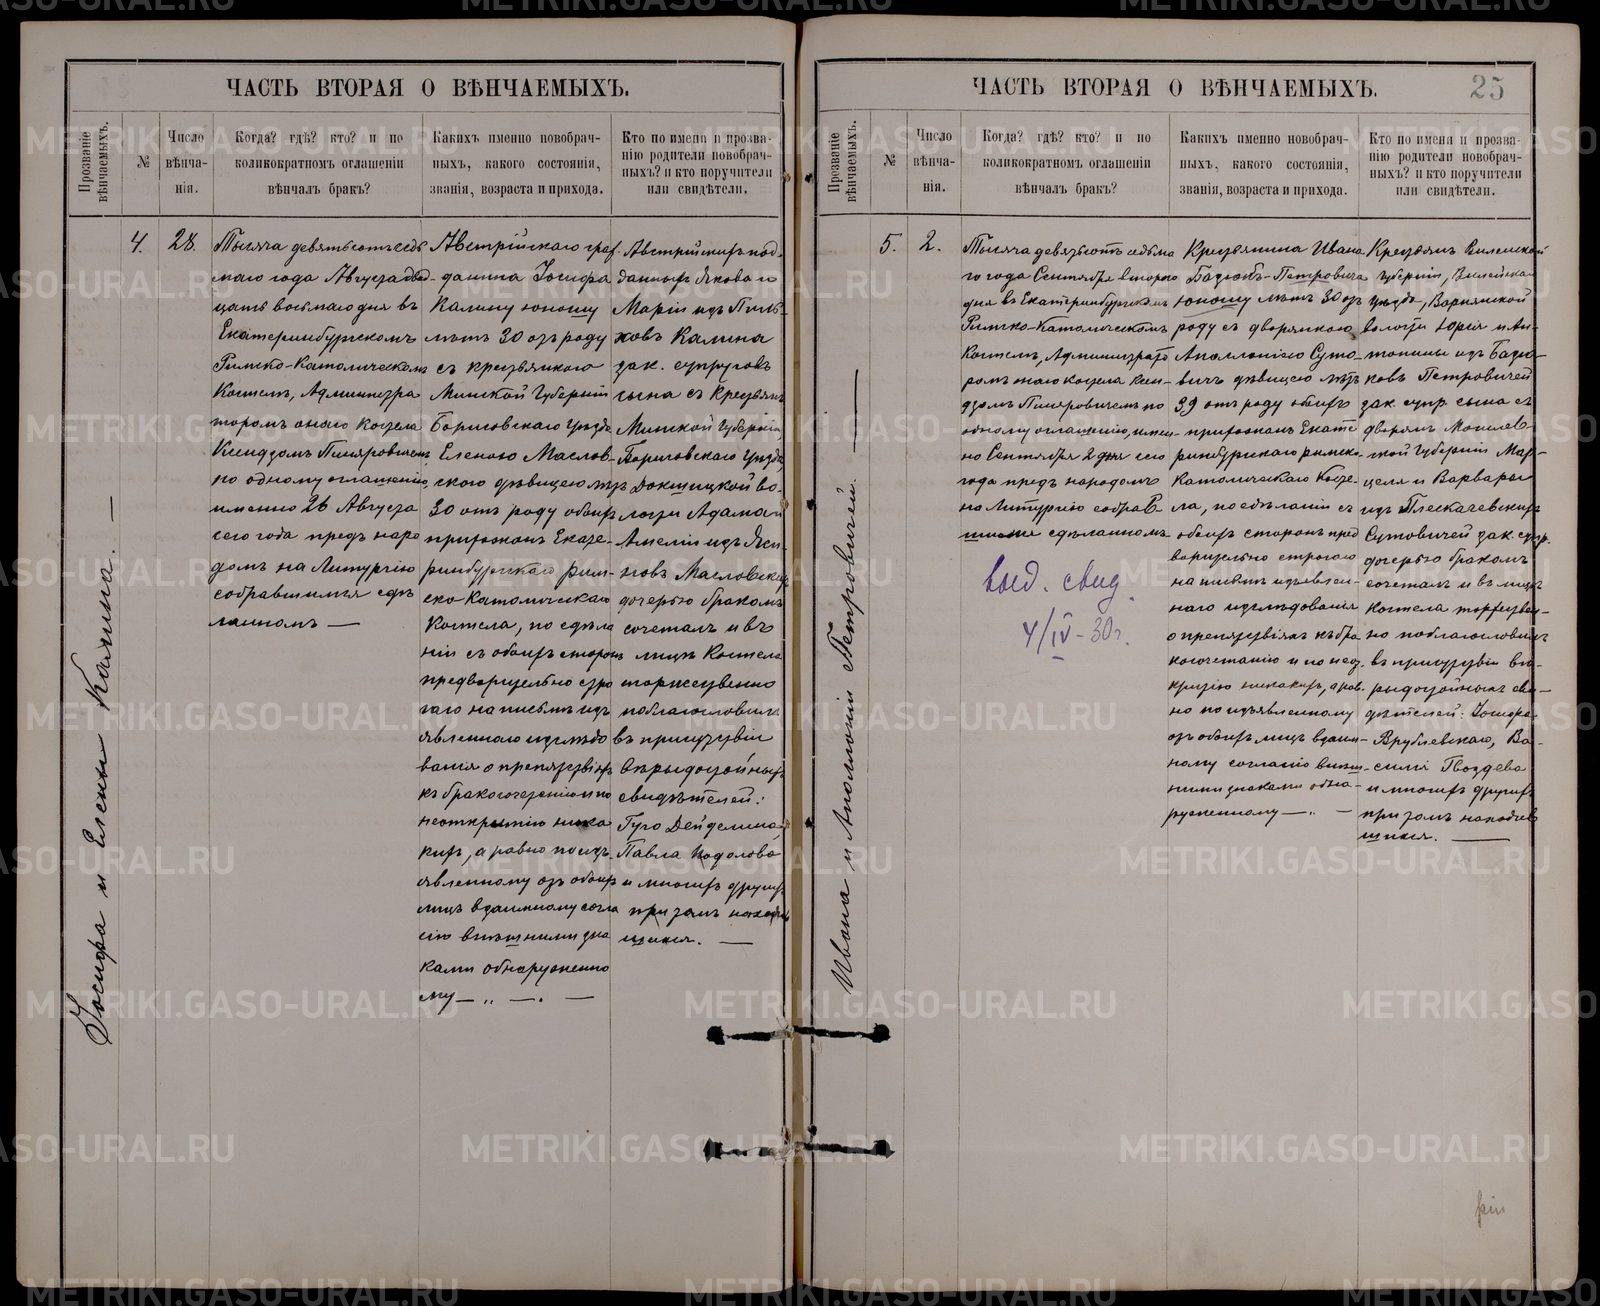 ЧАСТЬ ВТОРАЯ О ВѢНЧАЕМЫХЪ.
Прозваніе вѣнчаемыхъ.
№
Число
вѣнча-
нія.
Когда? гдѣ? кто? и по
коликократномъ оглашеніи
вѣнчалъ бракъ?
Какихъ именно новобрач-
ныхъ, какого состоянія,
званія, возраста и прихода.
Кто по имени и прозва-
нію родители новобрач-
ныхъ? и кто поручители
или свидѣтели.
Іосифа и Елены Калина. —
4.
28.
Тысяча девятьсотъ седь
маго года Августа двад-
цать восьмаго дня въ
Екатеринбургскомъ
Римско-Католическомъ
Костелѣ, Администра
торомъ онаго Костела
Ксендзомъ
по одному оглашенію,
именно 26 Августа
сего года предъ наро
домъ на Литургію
собравшимся сдѣ
ланномъ —
Австрійскаго граж
данина Іосифа
Калину юношу
лѣтъ 30 отъ роду
съ крестьянкою
Минской Губерніи
Борисовскаго уѣзда
Еленою Маслов-
ского дѣвицею лѣтъ
30 отъ роду обоихъ
прихожанъ Екате-
ринбургскаго Рим-
ско Католическаго
Костела, по сдѣла
ніи съ обоихъ сторонъ
предворительно стро
гаго на письмѣ изъ
явленнаго изслѣдо
ванія о препятствіяхъ
къ бракосочетанію и по
неоткрытію ника
кихъ, а равно по изъ-
явленному отъ обоихъ
лицъ взаимному согла
сію внѣшними зна
ками обнаруженно
му — „ — . —
Австрійскихъ под-
данныхъ Якова и
Маріи изъ
ковъ Калина
зак. супруговъ
сына съ Крестьянъ
Минской Губерніи,
Борисовскаго уѣзда,
Докшицкой во-
лости Адама и
Амеліи изъ Яси-
ковъ Масловскихъ
дочерью бракомъ
сочеталъ и въ
лицѣ Костела
торжественно
поблагословилъ
въ присутствіи
вѣрыдостойныхъ
свидѣтелей:
Гуго
Павла
и многихъ другихъ
при томъ находив
шихся. —
ЧАСТЬ ВТОРАЯ О ВѢНЧАЕМЫХЪ.
25
Прозваніе вѣнчаемыхъ.
№
Число
вѣнча-
нія.
Когда? гдѣ? кто? и по
коликократномъ оглашеніи
вѣнчалъ бракъ?
Какихъ именно новобрач-
ныхъ, какого состоянія,
званія, возраста и прихода.
Кто по имени и прозва-
нію родители новобрач-
ныхъ? и кто поручители
или свидѣтели.
Ивана и Аполлоніи Петровичей. —
5.
2.
Тысяча девятьсотъ седьма
го года Сентября втораго
дня въ Екатеринбургскомъ
Римско-Католическомъ
Костелѣ, Администрато
ромъ того Костела Ксен-
дзомъ по
одному оглашенію, имен-
но Сентября 2 дня сего
года предъ народомъ
на Литургію собрав
шимся сдѣланномъ
выд. свид.
4/IV - 30 г.
Крестьянина Ивана
Бадюкъ-Петровича
юношу лѣтъ 30 отъ
роду съ дворянкою
Аполлоніею Суто-
вичъ дѣвицею лѣтъ
39 отъ роду обоихъ
прихожанъ Екате
ринбургскаго римско-
католическаго Косте-
ла, по сдѣланіи съ
обоихъ сторонъ пред
варительно строгаго
на письмѣ изъявлен-
наго изслѣдованія
о препятствіяхъ къ бра
косочетанію и по неот-
крытію никакихъ, а рав-
но по изъявленному
отъ обоихъ лицъ взаим-
ному согласію внѣш-
ними знаками обна-
руженному — „ —
Крестьянъ Виленской
Губерніи, Вилейскаго
уѣзда,
волости Юрія и Ан-
тонины изъ Бадю-
ковъ Петровичей
зак. супр. сына съ
дворянъ Могилев-
ской Губерніи Мар-
целя и Варвары
изъ Плескачевскихъ
Сутовичей зак. супр.
дочерью бракомъ
сочеталъ и въ лицѣ
Костела торжествен-
но поблагословилъ
въ присутствіи вѣ-
рыдостойныхъ сви-
дѣтелей: Іосифа
Врублевскаго, Ва-
силія Гвоздева
и многихъ другихъ
при томъ находив
шихся. —
METRIKI.GASO-URAL.RU